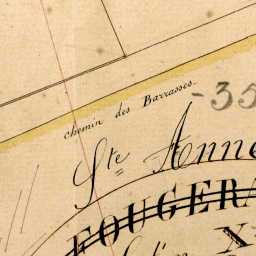 chemin des Barrasses
-35
Ste Anne
FOUGERA
X